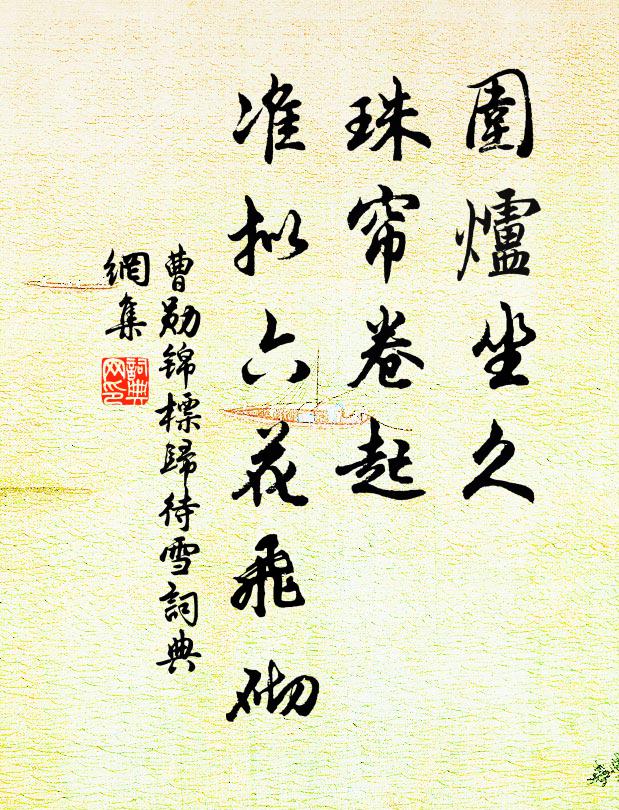 圍爐坐久
珠帘卷起
准拟六花飛砌
曹勋錦標歸待雪詞典
網集
詞典
网印